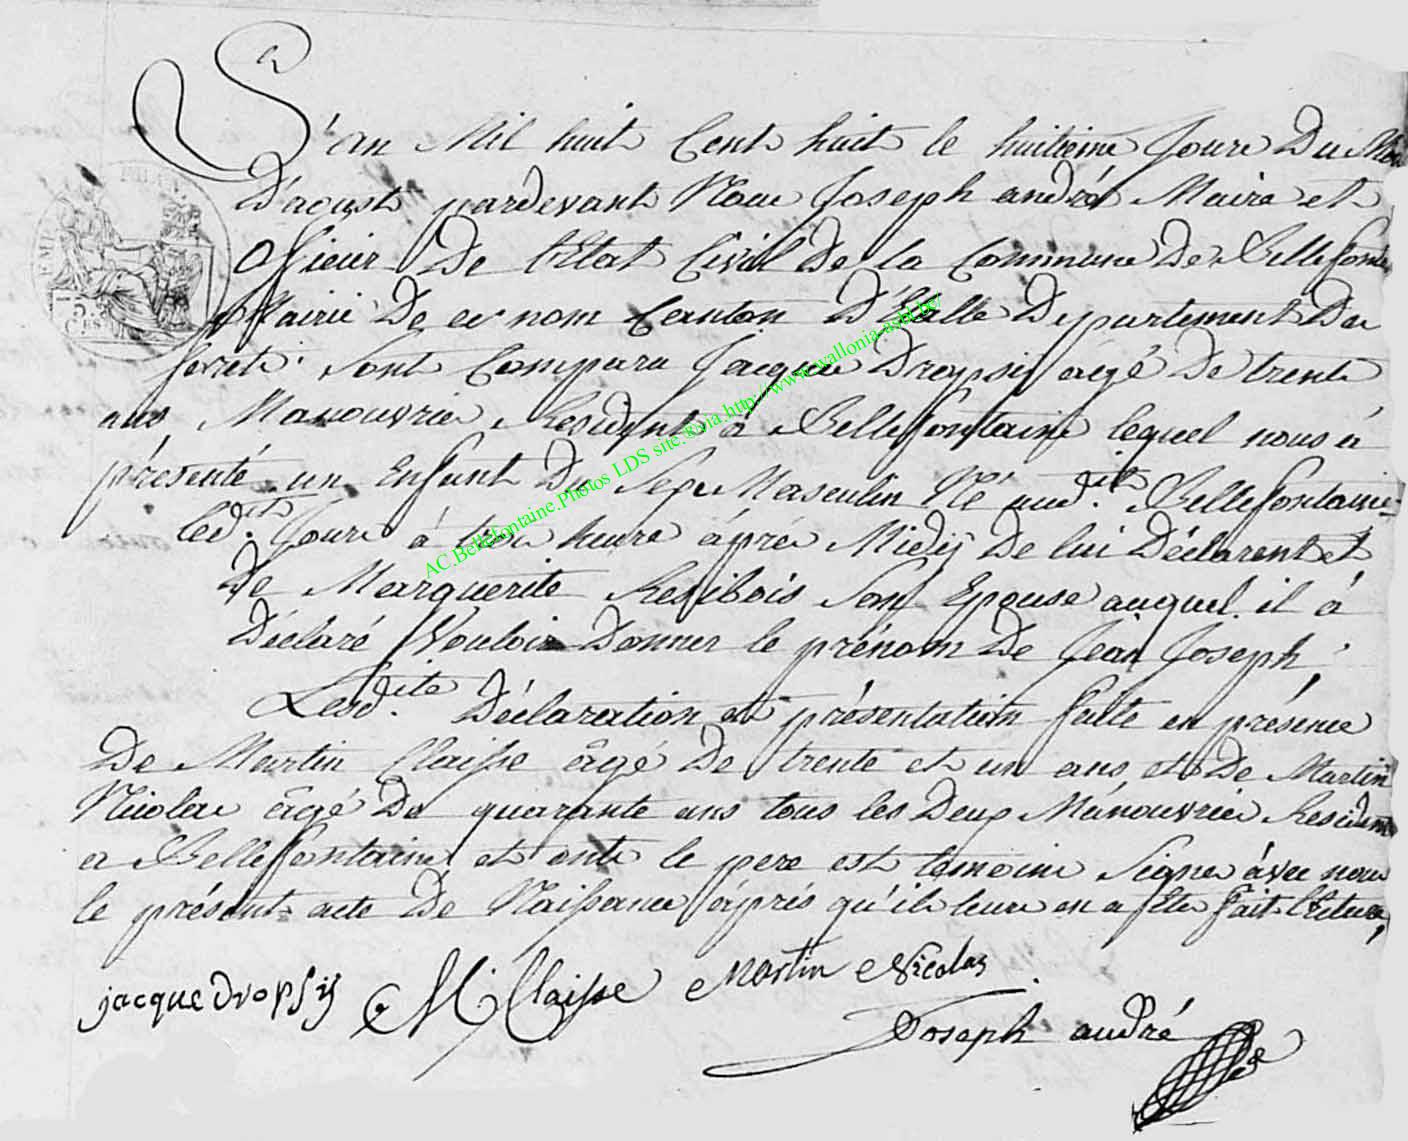 L'an Mil huit Cent huit le huitieme Jour Du Moi
D'aoust pardevant Nou Joseph andré Maire et
officier De l'Etat Civil De la Commune De Bellefontai
Mairie De ce nom Canton D'Etalle Departement De
foret. Sont Comparu Jacque Dropsij agé De trente
ans Manouvrie Resident à Bellefontaine lequel nous à
présenté un Enfant Du Sexe Masculin Né aud.it Bellefontaine
led.it Jour à heure aprée Midij De lui Declarent et
De Marguerite Resibois Son Epouse auquel il à
Déclaré Vouloir Donner le prénom De Jean Joseph,
Lesd.ite Déclaration et présentation faite en présence
De Martin Claisse âgé De trente et un ans et De Martin
Nicolae âgé De quarante ans tous les Deux Manouvrié Resident
a Bellefontaine et ont le pere est temoins Signe àvec nous
le présent acte De Naissance àprés qu'ile leure en a Ete fait lecture,
jacque Dropsij M Claisse Martin Nicolas
Joseph andré
EMP
5.
C.ES
AC.Bellefontaine.Photos LDS site.®via http://www.wallonia-asbl.be/